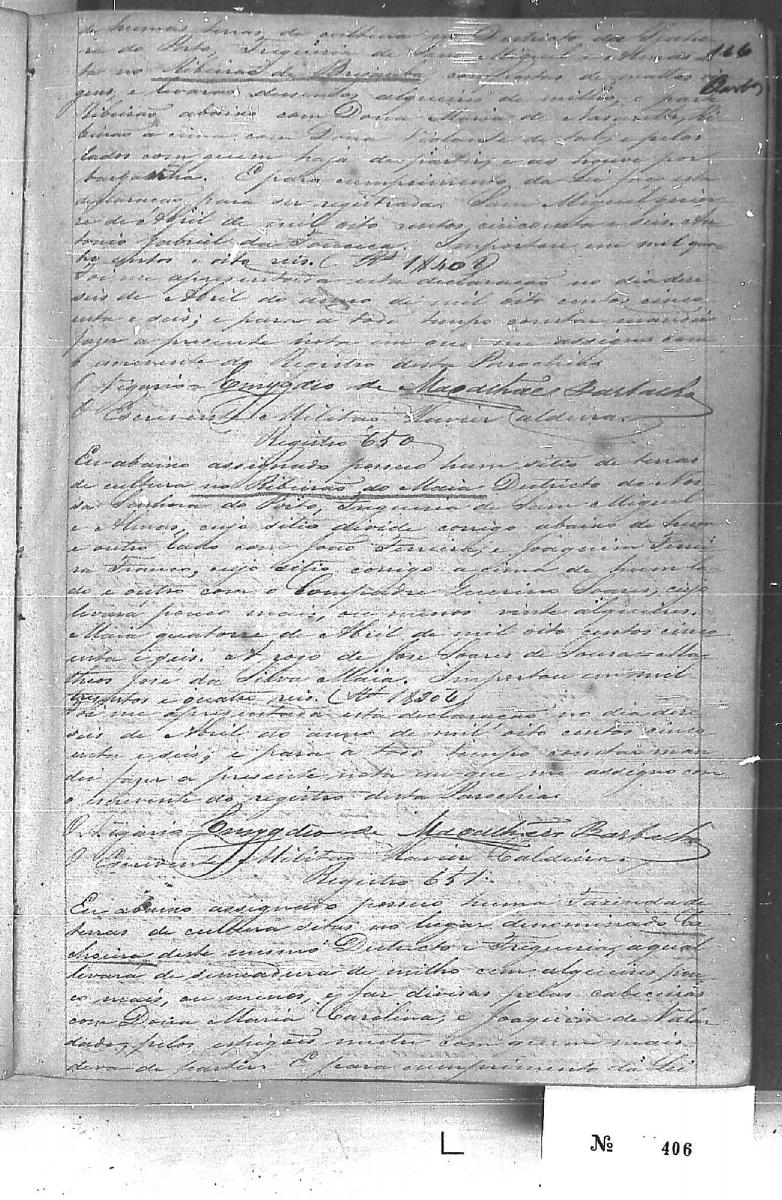 de humas terras de cultura no Districto da Senho
ra do Porto, Freguesia de San Miguel e Almas
ta no Ribeirão de Brejauba com fastos de mattas vir
gens, e levarão dusentos alqueires de milho, e parte
Ribeirão abaixo com Dona Maria de Nasareth, Ri
beirão a cima com Dona Violante de tal, e pelos
lados com quem haja de partir, e as houve por
barganha. E para cumprimento da Lei faço esta
declaração para ser registrada. Sam Miguel quin
ze de Abril de mil oito centos cincoenta e seis. An
tonio Gabriel da Fonseca. Importou em mil qua
tro centos e oito reis.
Foi me apresentada esta declaração no dia deze
seis de Abril do anno de mil oito centos cinco
enta e seis; e para a todo tempo constar mandei
faser a presente nota em que me assigno com
o escrevente do Registro desta Parochia
O Vigario Emygdio de Magalhães Barbalho
O Escrevente Militão Xavier Caldeira
Registro 650
Eu abaixo assignado possuo hum sitio de terras
de cultura no Ribeirão do Maia Districto de Nos
sa Senhora do Porto, Freguesia de Sam Miguel
e Almas, cujo sitio divide corrigo abaixo de hum
e outro lado com João Ferreira, e Joaquim Ferrei
ra Franco, cujo sitio corrigo a cima de hum la
do e outro com o Compadre Quirino Soares, cujo
levará pouco mais, ou menos vinte alqueires.
Maia quatorze de Abril de mil oito centos cinco
enta e seis. A rogo de José Soares de Sousa Ma
theos José da Silva Maia. Importou em mil
tresentos e quatro reis.
Foi me apresentada esta declaração no dia deze
seis de Abril do anno de mil oito centos cinco
enta e seis; e para a todo tempo constar man
dei faser a presente nota em que me assigno com
o escrevente do registro desta Parochia
O Vigario Emygdio de Magalhães Barbalho
O Escrevente Militão Xavier Caldeira
Registro 651.
Eu abaixo assignado possuo huma Fasenda de
terras de cultura sitas no lugar denominado Ca
choeira deste mesmo Districto e Freguesia, a qual
levará de semeadura de milho cem alqueires pou
co mais, ou menos, e faz divisas pelas cabeceiras
com Dona Maria Carolina, e Joaquim de Vala
dares, pelos espigões mestre com quem mais
deva de partir. E para cumprimento da Lei
Nº 406